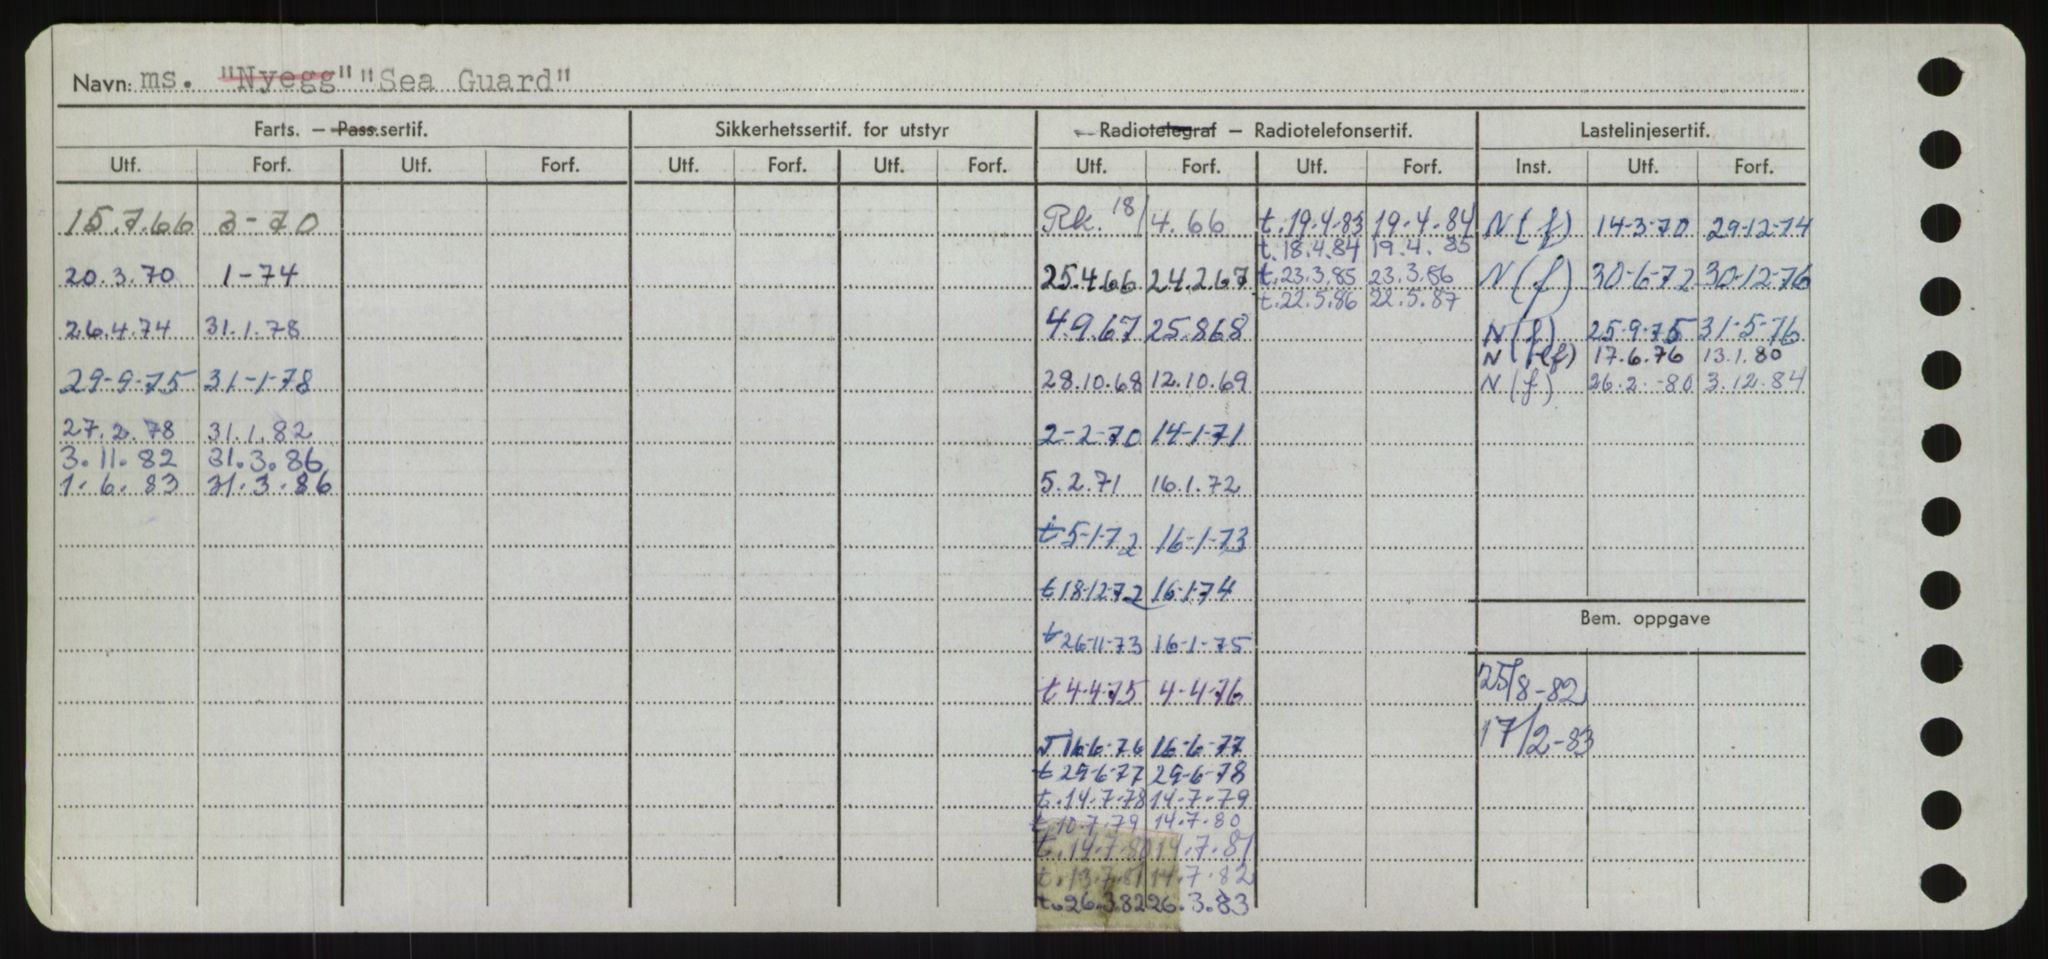 Navn: ms. "Nyegg" "Sea Guard"
Farts. — Pass.sertif. Sikkerhetssertif. for utstyr Radiotelegraf — Radiotelefonsertif. Lastelinjesertif.
Utf. Forf. Utf. Forf. Utf. Forf. Utf. Forf. Utf. Forf. Utf. Forf. Inst. Utf. Forf.
15.7.66 3-70 Rk. 18/4.66 t.19.4.83 19.4.84 N(f) 14-3-70 29-12-74
t.18.4.84 19.4.85
20.3.70 1-74 25.4.66 24.2.67 t.23.3.85 23.3.86 N(f) 30-6-72 30-12-76
t.22.5.86 22.5.87
26.4.74 31.1.78 4.9.67 25.868 N(f) 25-9-75 31-5-76
N (f) 17.6.76 13.1.80
29-9-75 31-1-78 28.10.68 12.10.69 N(f) 26.2.-80 3.12.84
27.2.78 31.1.82 2-2-70 14-1-71
3.11.82 31.3.86
1.6.83 31.3.86 5.2.71 16.1.72
t 5-1-72 16-1-73
t 18-12-72 16-1-74
Bem. oppgave
t 26-11-73 16-1-75
t 4-4-75 4-4-76 25/8-82
16-6-76 16-6-77 17/2-83
t 29-6-77 29-6-78
t.14.7.78 14.7.79
t.10.7.79 14.7.80
t.14.7.80 14.7.81
t.13.7.81 14.7.82
t.26.3.82 26.3.83